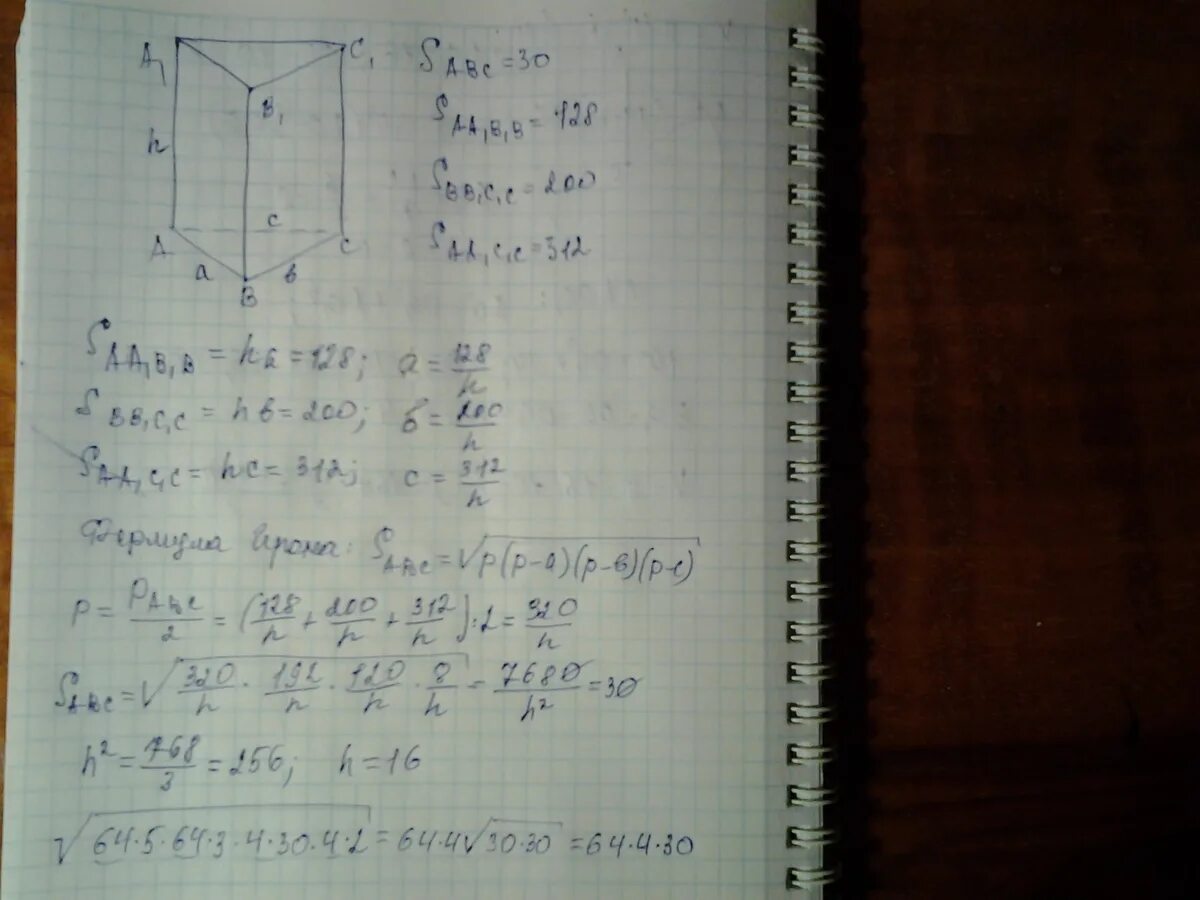 A₁
C₁
B₁
h
c
A
C
a
в
B
S_ABC = 30
S_AA₁B₁B = 128
S_BB₁C₁C = 200
S_AA₁C₁C = 312
S_AA₁B₁B = ha = 128; a = 128/h
S_BB₁C₁C = hв = 200; в = 200/h
S_AA₁C₁C = hc = 312; c = 312/h
Формула Герона: S_ABC = √(p(p-a)(p-в)(p-c))
p = P_ABC/2 = (128/h + 200/h + 312/h) : 2 = 320/h
S_ABC = √(320/h · 192/h · 120/h · 8/h) = 7680/h² = 30
h² = 768/3 = 256; h = 16
√(64·5·64·3·4·30·4·2) = 64·4√(30·30) = 64·4·30